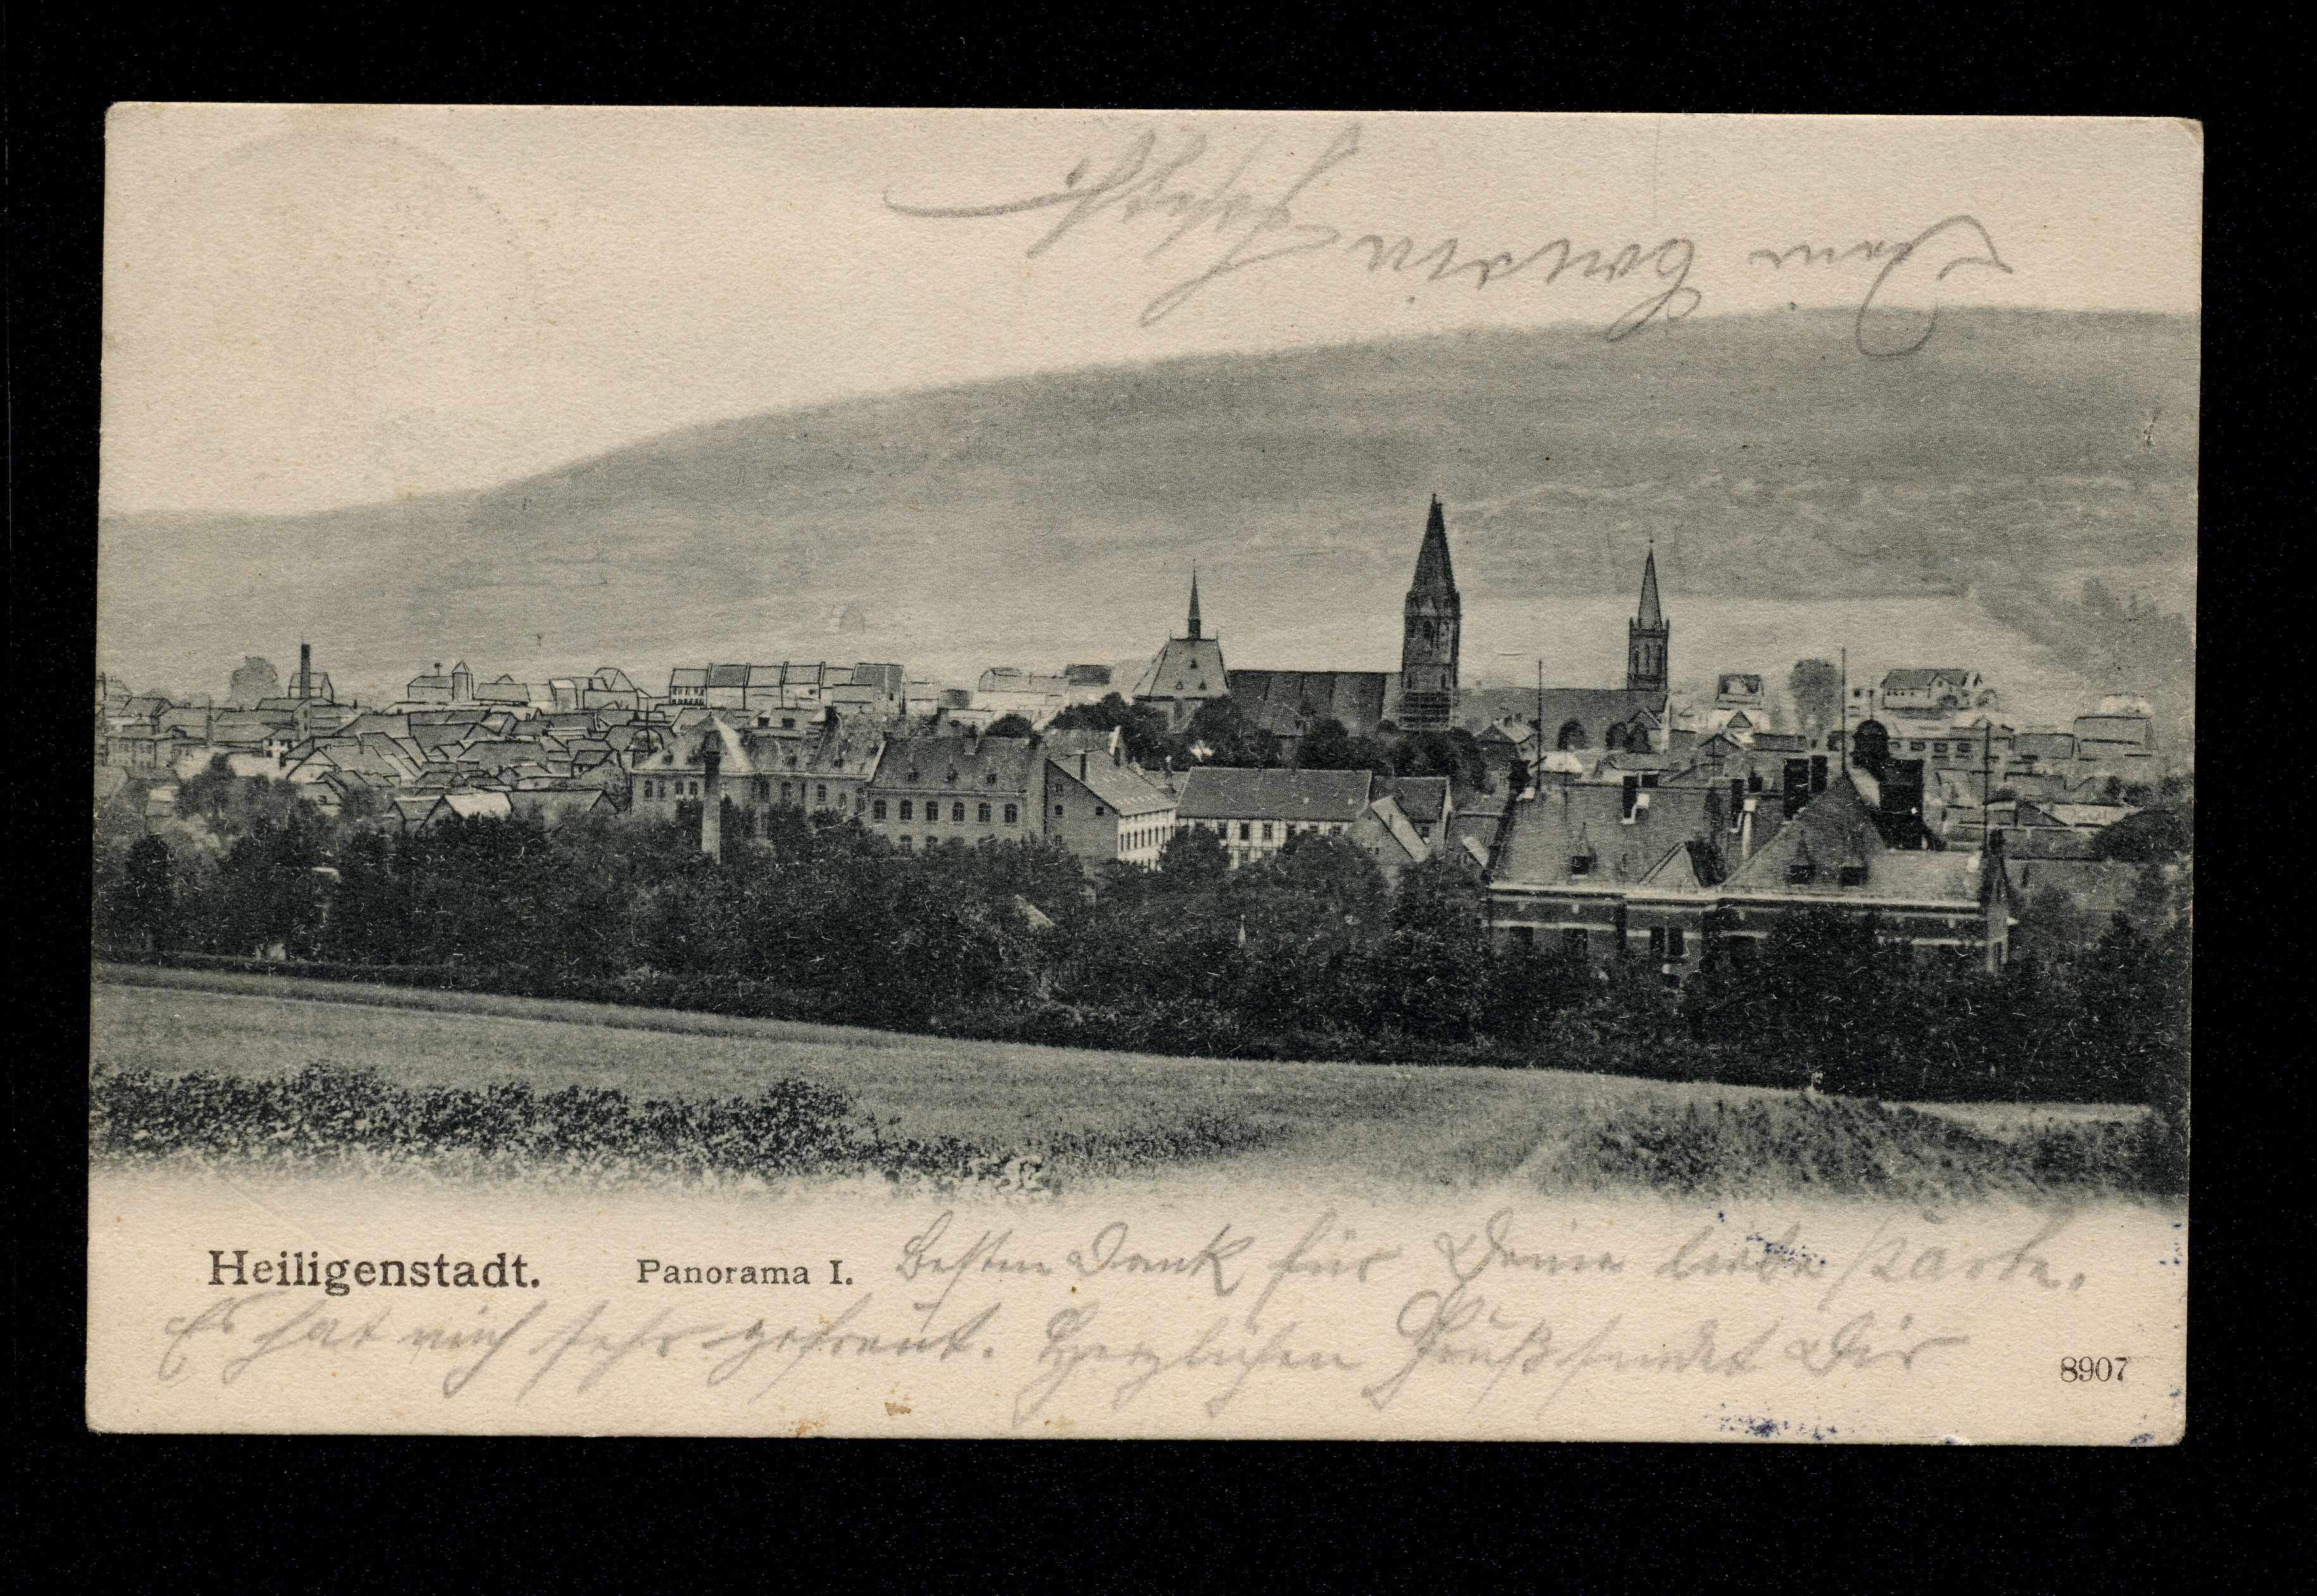 Heiligenstadt. Panorama I. Besten Dank für Deine liebe Karte.
Es hat mich sehr gefreut. Herzlichen Gruß sendet Dir
8907
Deine